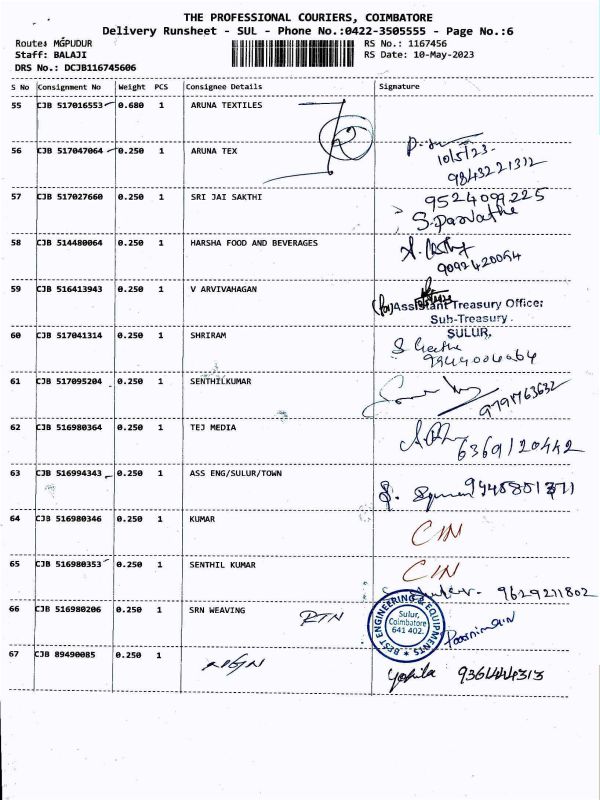 THE PROFESSIONAL COURIERS, COIMBATORE
Delivery Runsheet - SUL - Phone No.:0422-3505555 - Page No.:6
Route: MGPUDUR RS No.: 1167456
Staff: BALAJI RS Date: 10-May-2023
DRS No.: DCJB116745606
S No Consignment No Weight PCS Consignee Details Signature
55 CJB 517016553 0.680 1 ARUNA TEXTILES
56 CJB 517047064 0.250 1 ARUNA TEX
10/5/23.
9843221312
57 CJB 517027660 0.250 1 SRI JAI SAKTHI 9524099225
S. Parvathe
58 CJB 514480064 0.250 1 HARSHA FOOD AND BEVERAGES
9092420054
59 CJB 516413943 0.250 1 V ARVIVAHAGAN
(for) Assistant Treasury Officer
Sub-Treasury.
SULUR.
60 CJB 517041314 0.250 1 SHRIRAM S Geetha
61 CJB 517095204 0.250 1 SENTHILKUMAR
9791763632
62 CJB 516980364 0.250 1 TEJ MEDIA
6369120442
63 CJB 516994343 0.250 1 ASS ENG/SULUR/TOWN
64 CJB 516980346 0.250 1 KUMAR CIN
65 CJB 516980353 0.250 1 SENTHIL KUMAR CIN
9629211802
66 CJB 516980206 0.250 1 SRN WEAVING RTN
BEST ENGINEERING & EQUIPMENTS
Sulur,
Coimbatore
641 402.
67 CJB 89490085 0.250 1
9364444313